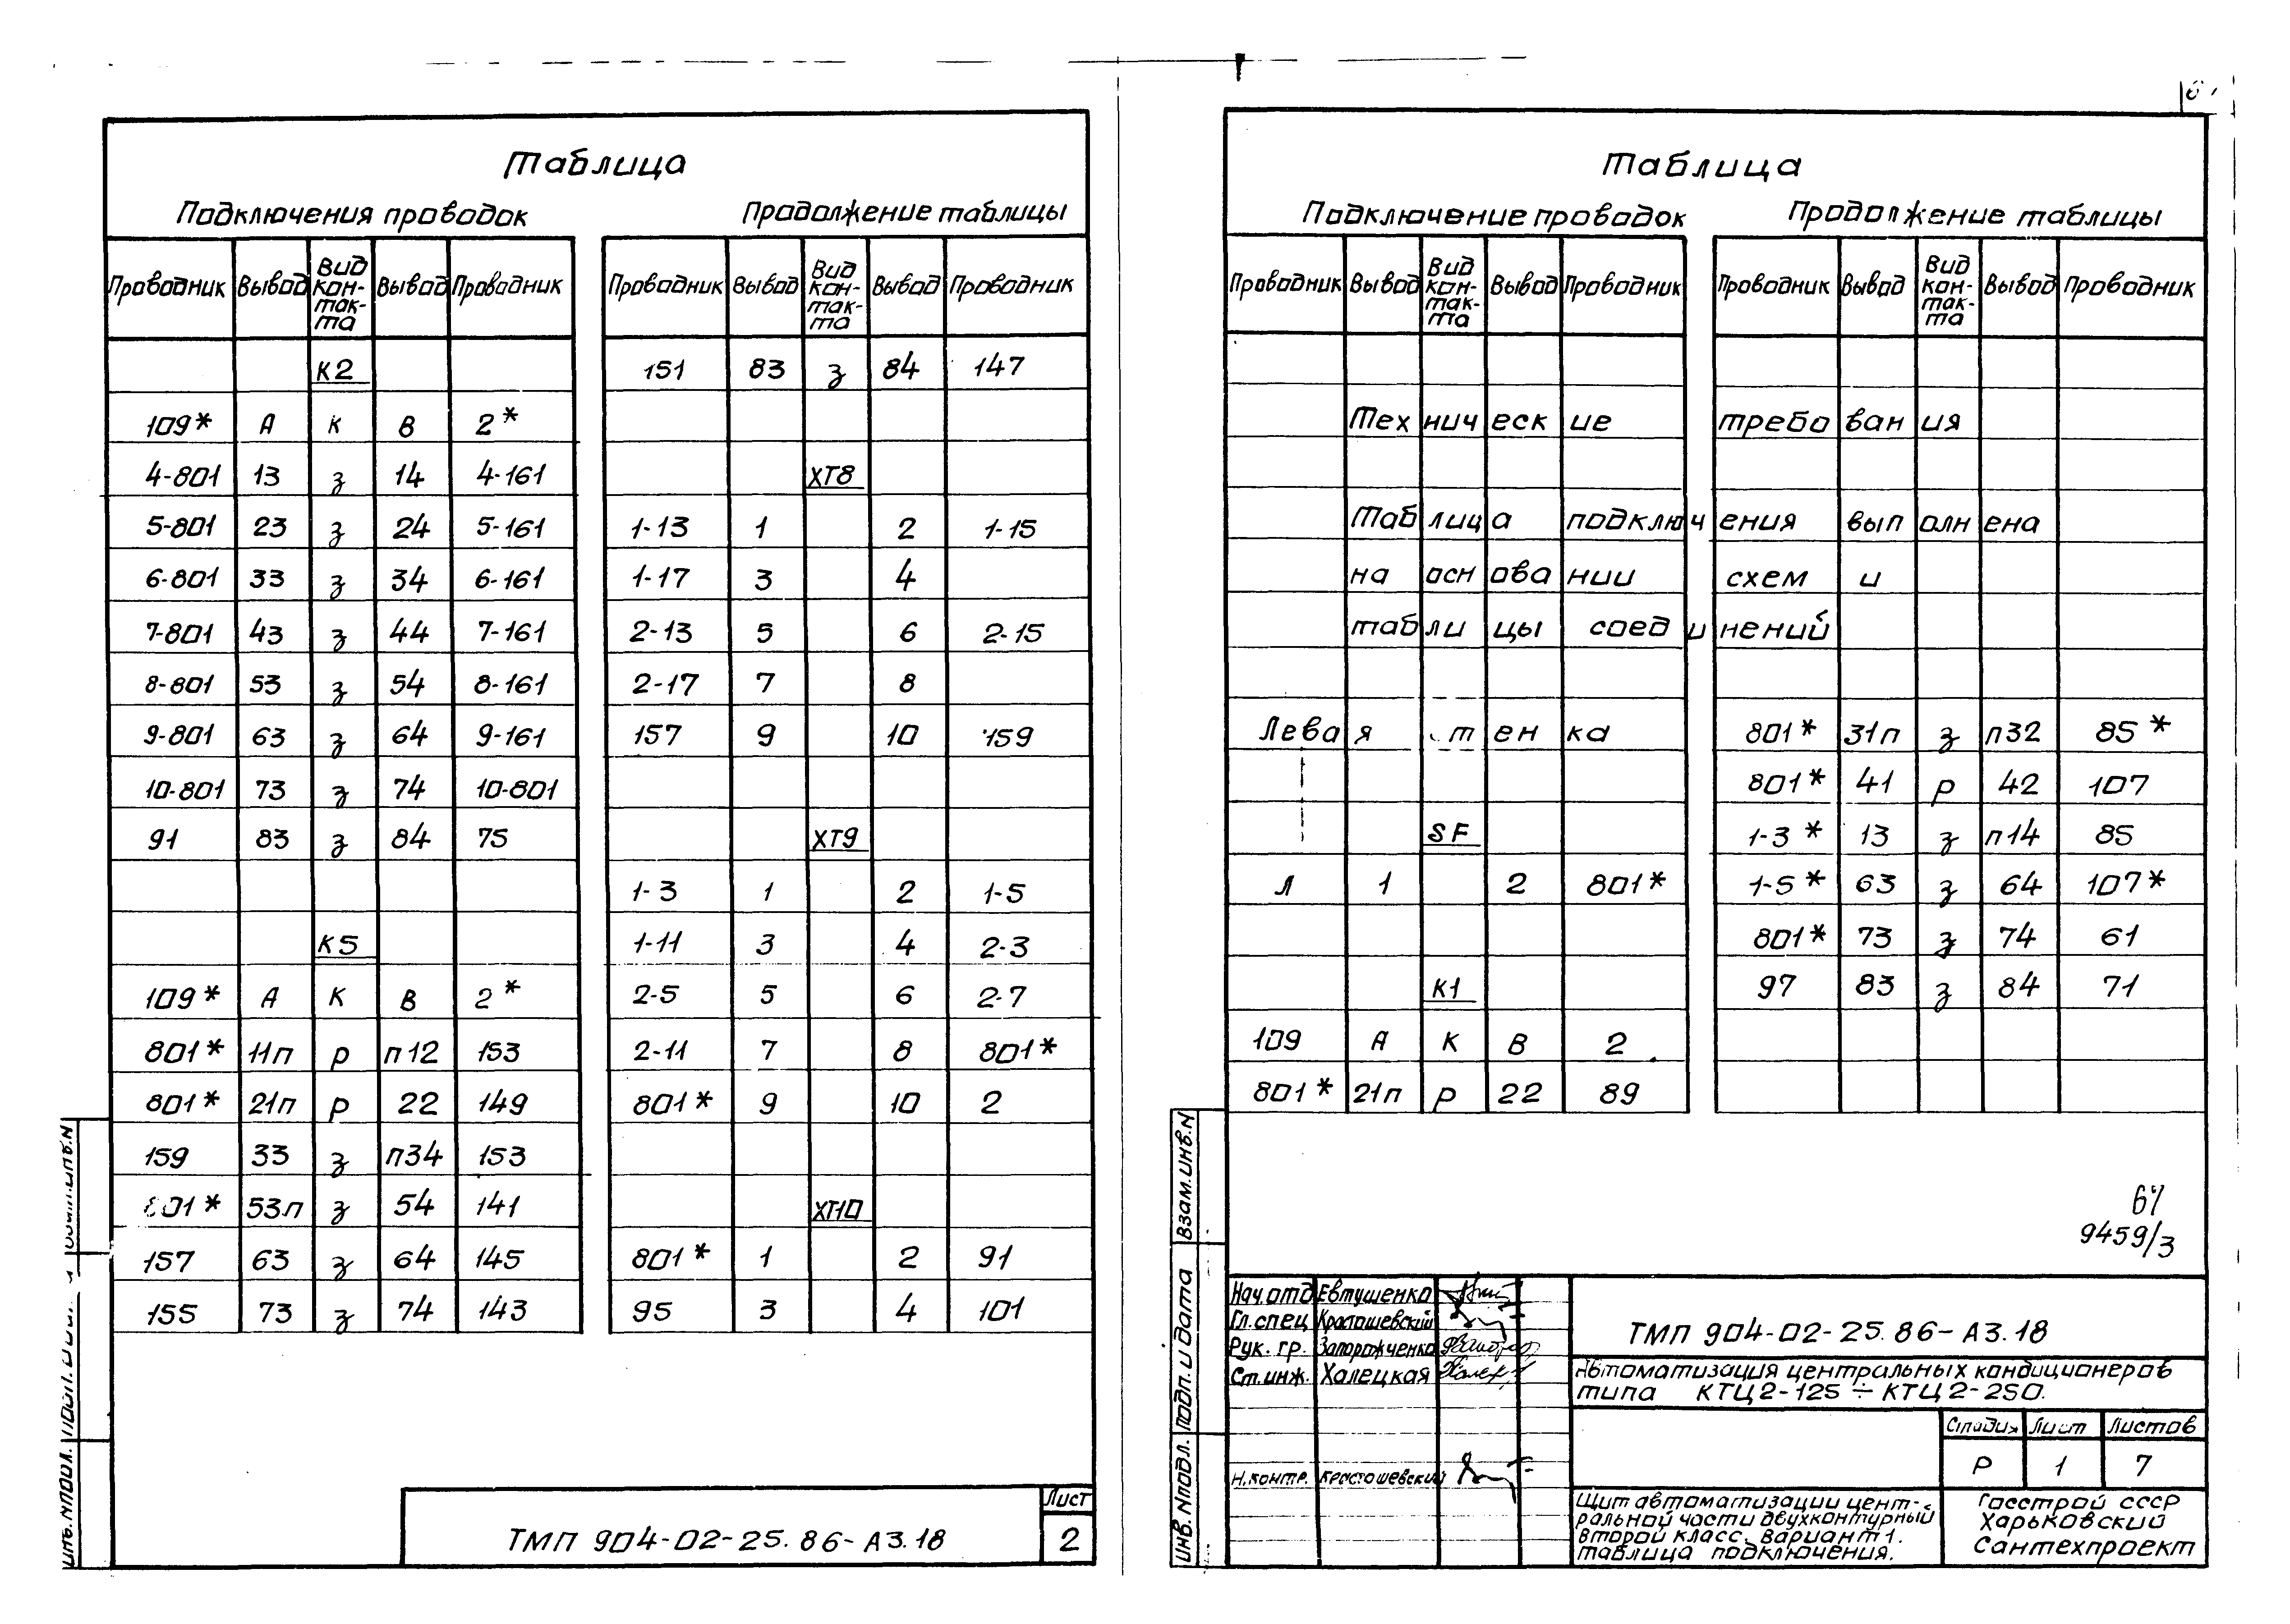 Таблица
Подключения проводок
Продолжение таблицы
Проводник Вывод Вид кон-так-та Вывод Проводник
К2
109* А К В 2*
4-801 13 з 14 4-161
5-801 23 з 24 5-161
6-801 33 з 34 6-161
7-801 43 з 44 7-161
8-801 53 з 54 8-161
9-801 63 з 64 9-161
10-801 73 з 74 10-801
91 83 з 84 75
К5
109* А К В 2*
801* 11п р п12 153
801* 21п р 22 149
159 33 з п34 153
801* 53п з 54 141
157 63 з 64 145
155 73 з 74 143
Проводник Вывод Вид кон-так-та Вывод Проводник
151 83 з 84 147
ХТ8
1-13 1 2 1-15
1-17 3 4
2-13 5 6 2-15
2-17 7 8
157 9 10 159
ХТ9
1-3 1 2 1-5
1-11 3 4 2-3
2-5 5 6 2-7
2-11 7 8 801*
801* 9 10 2
ХТ10
801* 1 2 91
95 3 4 101
ТМП 904-02-25.86-А3.18
Лист
2
Таблица
Подключение проводок
Продолжение таблицы
Проводник Вывод Вид кон-так-та Вывод Проводник
Проводник Вывод Вид кон-так-та Вывод Проводник
Технические требования
Таблица подключения выполнена
на основании схем и
таблицы соединений
Левая тенка
SF
Л 1 2 801*
К1
109 А К В 2
801* 21п р 22 89
801* 31п з п32 85*
801* 41 р 42 107
1-3* 13 з п14 85
1-5* 63 з 64 107*
801* 73 з 74 61
97 83 з 84 71
9459/3
Взам.инв.N
Подп. и дата
Инв. Nподл.
Нач.отд Евтушенко
Гл.спец Красташевский
Рук. гр. Запорожченко
Ст.инж. Халецкая
Н.контр. Красташевский
ТМП 904-02-25.86-А3.18
Автоматизация центральных кондиционеров
типа КТЦ2-125÷КТЦ2-250.
Стадия Лист Листов
Р 1 7
Щит автоматизации цент-
ральной части двухконтурный
второй класс. Вариант 1.
Таблица подключения.
Госстрой СССР
Харьковский
Сантехпроект